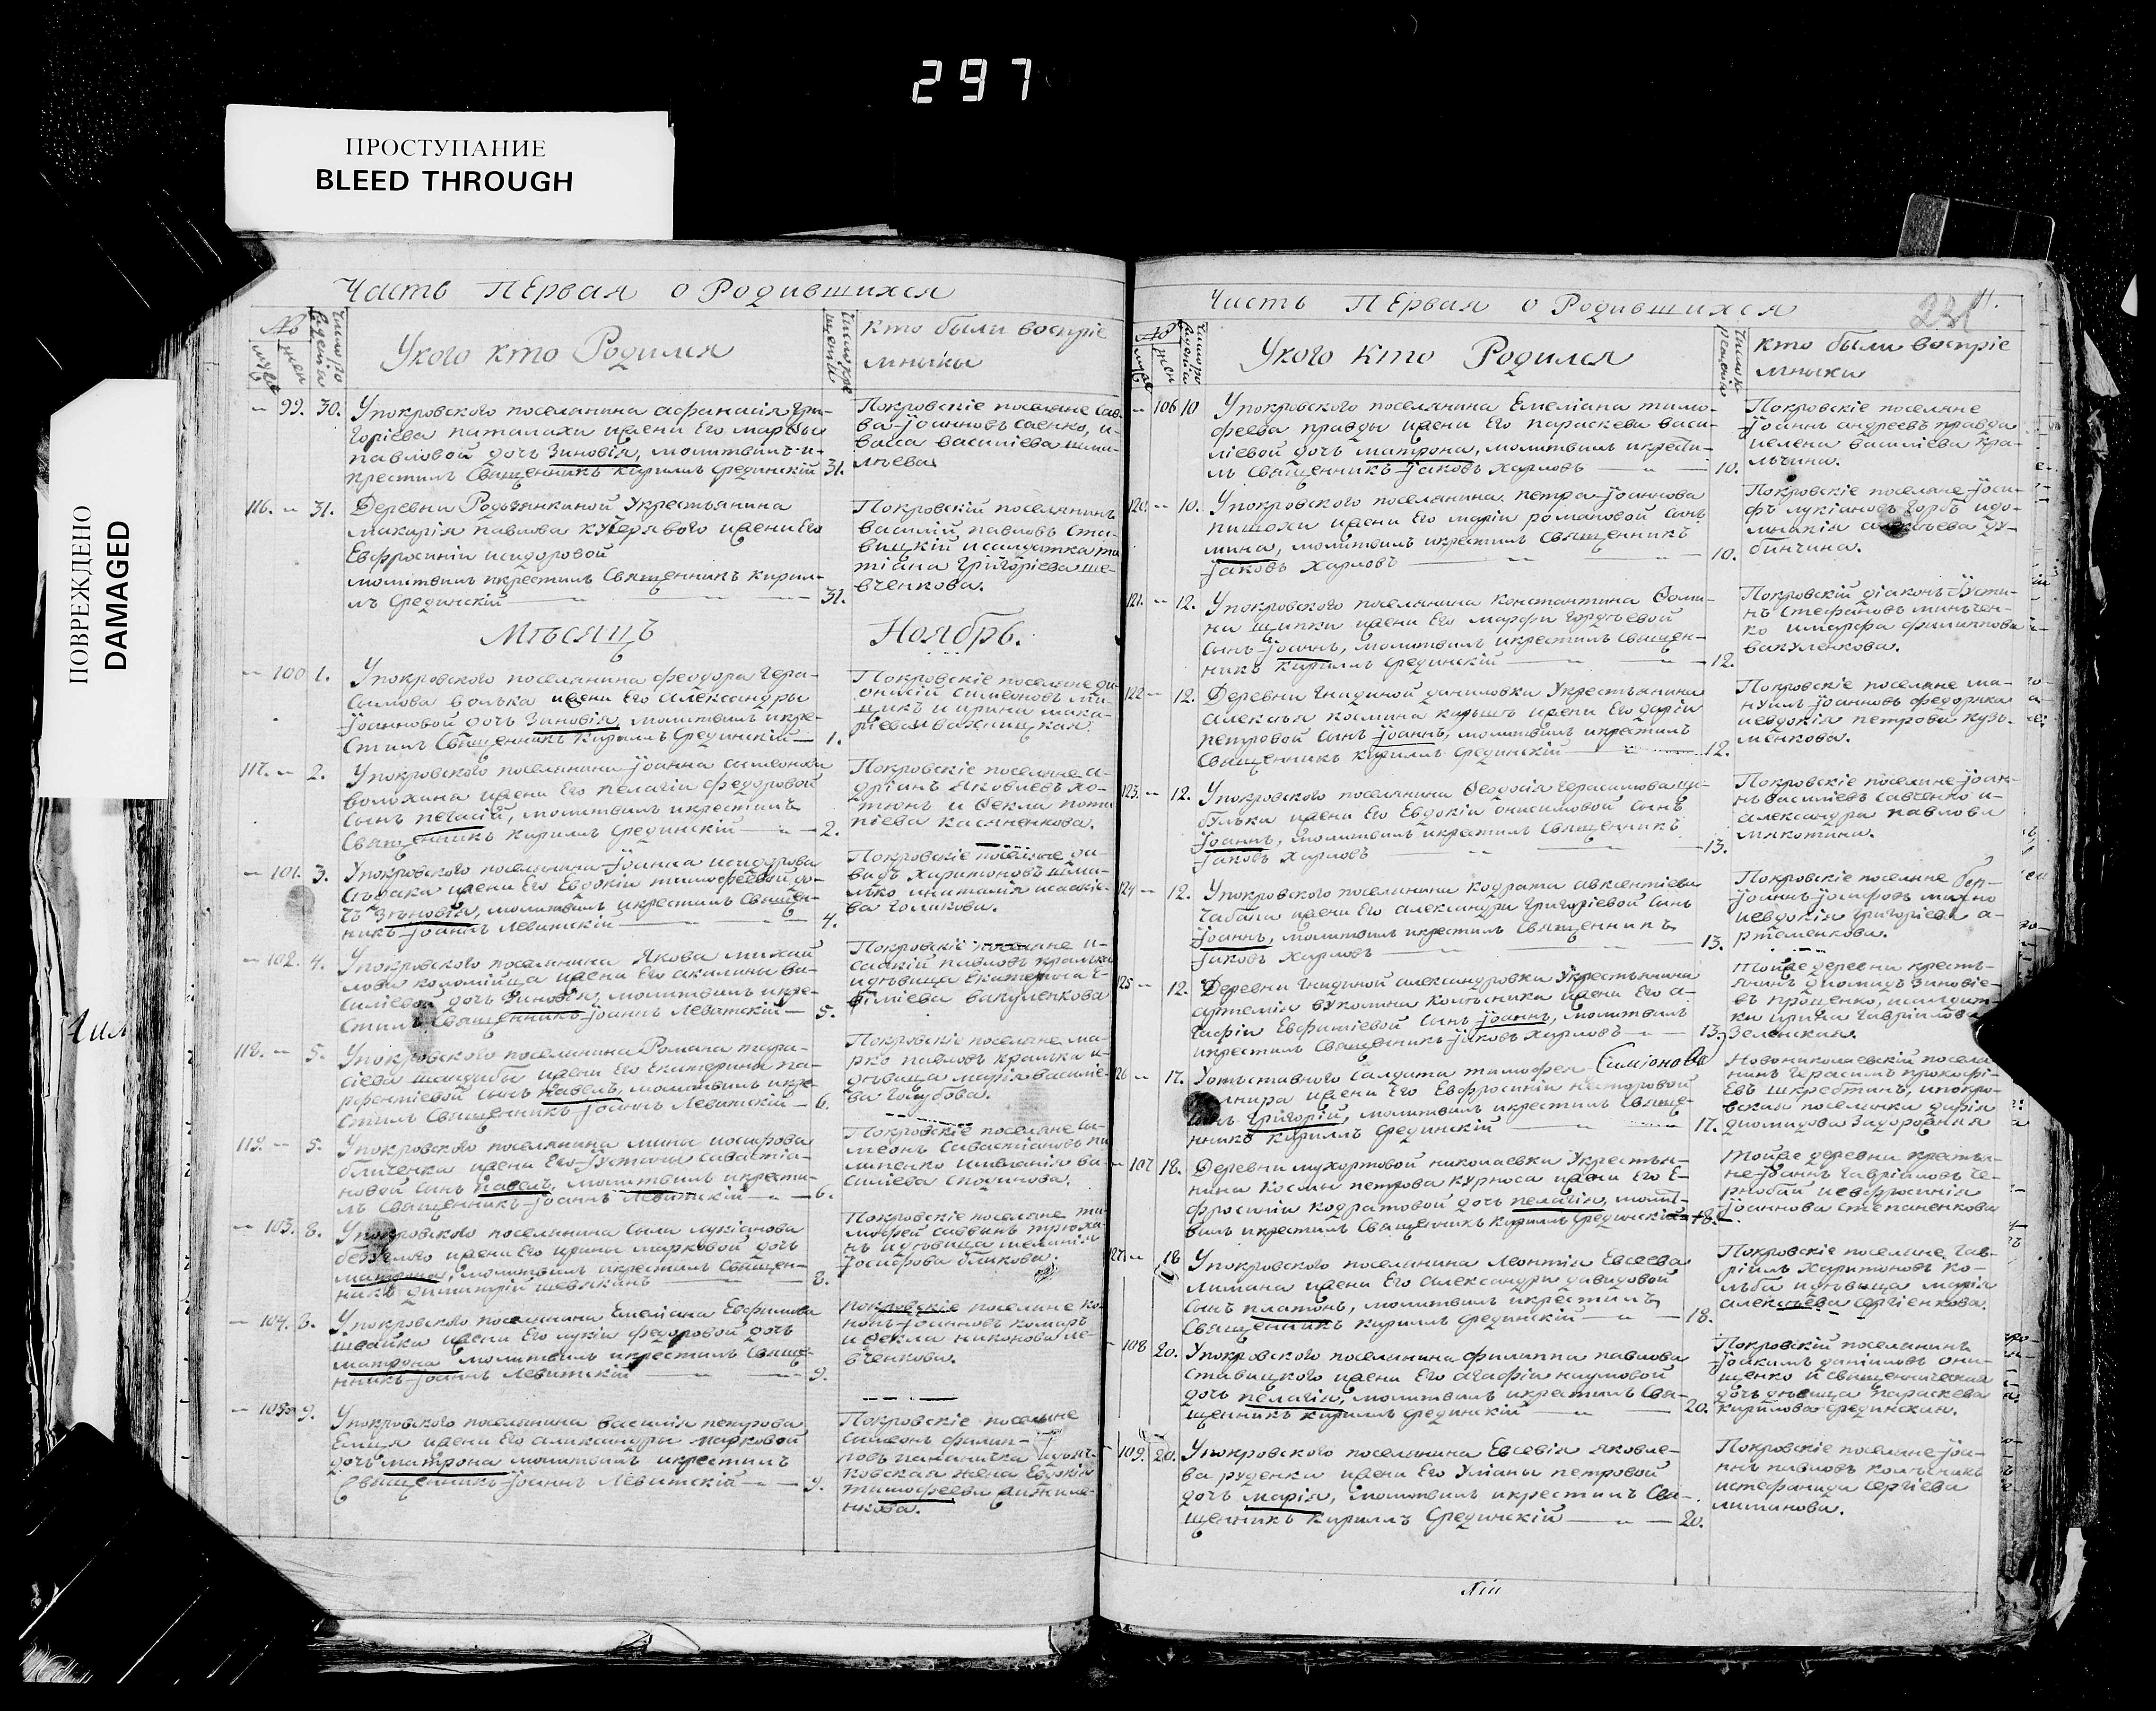 297
ПРОСТУПАНИЕ
BLEED THROUGH
ПОВРЕЖДЕНО
DAMAGED
Часть ПЕрвая о Родившихся
Укого кто Родился
кто были воспріе
мники
99. 30. Упокровского поселянина афанасія Гри-
горіева паталахи ижени Его марфы
павловой дочь Зиновія, молитвилъ и
крестилъ Священникъ Кирилъ Срединскій 31.
Покровскіе поселяне Сав-
ва Іоанновъ саенко, и
васса василіева
116. 31. Деревни Родзянкиной Укрестьянина
макарія павлова кучеряваго ижени Его
Евфросиніи исидоровой
молитвилъ икрестилъ Священникъ Кирил-
лъ Срединскій 31.
Покровскій поселянинъ
василій павловъ Ста-
вицкій исалдатка та
тіана Григоріева ше-
вченкова.
Мѣсяцъ Ноябрь.
100 1. Упокровского поселянина феодора Гера-
симова волька ижени Его александры
Іоанновой дочь Зиновія, молитвилъ икре-
стилъ Священникъ Кириллъ Срединскій 1.
Покровскіе поселяне ди-
онисій симеоновъ
и ирина мака-
ріева
117. 2. Упокровского поселянина Іоанна симеонова
волохина ижени Его пелагіи федоровой
сынъ пегасій, молитвилъ икрестилъ
Священникъ Кириллъ Срединскій 2.
Покровскіе поселяне а-
дріанъ Яковлевъ хо-
тюнъ и Фекла пота
піева касяненкова.
101. 3. Упокровского поселянина Іоанна исидорова
ижени Его Евдокіи тимофеевой до-
чь Зѣновія, молитвилъ икрестилъ Священ-
никъ Іоаннъ Левитскій 4.
Покровскіе поселяне да-
видъ Харитоновъ
ва голикова.
102. 4. Упокровского поселянина Якова михай
лова коломійца ижени Его акилины ва-
силіевой дочь Зиновія, молитвилъ икре-
стилъ Священникъ Іоаннъ Левитскій 5.
Покровскіе поселяне и-
саакій павловъ крамка
идѣвица Екатерина Е-
фіміева вакуленкова
118. 5. Упокровского поселянина Романа тара-
сіева ижени Его Екатерины па-
рфентіевой сынъ Павелъ, молитвилъ икре-
стилъ Священникъ Іоаннъ Левитскій 6.
Покровскіе поселяне ма-
рко павловъ крамка и
дѣвица марія василіе-
ва Голубова.
119. 5. Упокровского поселянина мины иосифова
бличенка ижени Его Іустины савастіа-
новой сынъ Павелъ, молитвилъ икрести-
лъ Священникъ Іоаннъ Левитскій 6.
Покровскіе поселяне си-
меонъ Савастіановъ пи
липенко имеланія ва
силіева сподинова.
103. 8. Упокровского поселянина Сыли лукіанова
ижени Его ирины марковой дочь
матрона, молитвилъ икрестилъ Священ-
никъ Димитрій шевякинъ 8.
Покровскіе поселяне ти
мофей саввинъ трюха-
нъ идѣвица меланія
Іосифова бликова.
104. 8. Упокровского поселянина Емеліана Евфимова
швайки ижени Его лукіи федоровой дочь
матрона молитвилъ икрестилъ Свяще-
нникъ Іоаннъ Левитскій 9.
Покровскіе поселяне ко
нонъ Іоанновъ комаръ
иФекла никонова ле-
вченкова.
105 9. Упокровского поселянина василія петрова
Емця ижени Его александры марковой
дочь матрона молитвилъ икрестилъ
Священникъ Іоаннъ Левитскій 9.
Покровскіе поселяне
симеонъ филип-
повъ
жена Евдокія
тимофеева
нкова.
Часть ПЕрвая о Родившихся
231
Укого Кто Родился
Кто были воспріе
мники
106 10 Упокровского поселянина Емеліана тимо-
феева правды ижени Его параскева васи-
ліевой дочь матрона, молитвилъ икрести-
лъ Священникъ Іаковъ Харловъ 10.
Покровскіе поселяне
Іоаннъ андреевъ правда
иелена василіева кра-
льчина.
120. 10. Упокровского поселянина петра Іоаннова
пишохи ижени Его маріи романовой сынъ
мина, молитвилъ икрестилъ Священникъ
Іаковъ Харловъ 10.
Покровскіе поселяне Іоси-
фъ лукіановъ горбъ идо-
мникія алексѣева ду-
бинчина.
121. 12. Упокровского поселянина константина Фоми-
на щипки ижени Его марфи гордѣевой
сынъ Іоаннъ, молитвилъ икрестилъ Священ-
никъ Кириллъ Срединскій 12.
Покровскій діаконъ Іусти-
нъ Стефановъ миньчен-
ко имарфа филиппова
вакуленкова.
122 12. Деревни Гнидиной даниловки Укрестьянина
алексѣя космина ижени Его даріи
петровой сынъ Іоаннъ, молитвилъ икрестилъ
Священникъ Кириллъ Срединскій 12.
Покровскіе поселяне ма-
нуилъ Іоанновъ федоряка
иевдокія петрова кузь-
менкова.
123. 12. Упокровского поселянина Феодосія герасимова ци-
бульки ижени Его Евдокіи онисимовой сынъ
Іоаннъ, молитвилъ икрестилъ Священникъ
Іаковъ Харловъ 13.
Покровскіе поселяне Іоан-
нъ василіевъ савченко и-
александра павлова
мякотина.
124 12. Упокровского поселянина кодрата авксентіева
Чабана ижени Его александри григоріевой сынъ
Іоаннъ, молитвилъ икрестилъ Священникъ
Іаковъ Харловъ 13.
Покровскіе поселяне
Іоаннъ Іосифовъ махно
иевдокія Григоріева а-
ртеменкова.
125 12. Деревни Гнидиной александровки Укрестьянина
артемія вуколина колѣсника ижени Его а-
гафіи Евфиміевой сынъ Іоаннъ, молитвилъ
икрестилъ Священникъ Іаковъ Харловъ 13.
Тойже деревни кресть-
янинъ діомидъ Зиновіе-
въ проценко, исалдат-
ка ирина гавріилова
Зеленская.
126 17. Уотъставного салдата тимофея Симіонова
ижени Его Евфросиніи несторовой
сынъ Григорій, молитвилъ икрестилъ Свяще-
нникъ Кириллъ Срединскій 17.
Новониколаевскій поселя
нинъ Герасимъ прокофі-
евъ шкребтинъ, ипокро-
вская поселянка дарія
диомидова Задорожняя
107 18. Деревни мухортовой николаевки Укрестьян-
нина Космы петрова Курноса ижени Его Е-
фросиніи кодратовой дочь пелагія, молит-
вилъ икрестилъ Священникъ Кириллъ Срединскій 18.
Тойже деревни крестья-
не Іоаннъ гавріиловъ Че-
рнобай иевфросинія
Іоаннова степаненкова
127. 18 Упокровского поселянина Леонтія Евсеева
Лимана ижени Его александри давидовой
сынъ платонъ, молитвилъ икрестилъ
Священникъ Кириллъ Срединскій 18.
Покровскіе поселяне гав-
ріилъ Харитоновъ ко-
льба идѣвица марія
алексѣева сергіенкова.
108 20. Упокровского поселянина филиппа павлова
ставицкого ижени Его агафіи наумовой
дочь пелагія, молитвилъ икрестилъ Свя-
щенникъ Кириллъ Срединскій 20.
Покровскій поселянинъ
Іоакимъ даніиловъ они-
щенко и священническая
дочь дѣвица параскева
кирилова Срединская.
109. 20. Упокровского поселянина Евсевія яковле-
ва руденка ижени Его Уліаны петровой
дочь марія, молитвилъ икрестилъ Свя-
щенникъ Кириллъ Срединскій 20.
Покровскіе поселяне Іоа-
ннъ павловъ колѣсникъ
истефанида сергіева
лиманова.